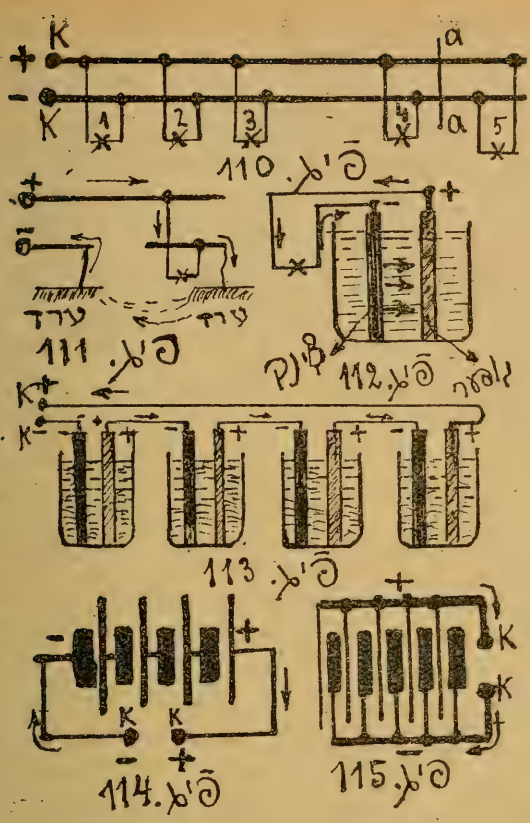 K a
+
-
K 1 2 3 4 a 5
פֿיג. 110
+
-
ערד ערד
פֿיג. 111
- +
צינק
פֿיג. 112
K +
K - - + - + - + - +
פֿיג. 113
- +
K K
- +
פֿיג. 114
+
K
K
-
פֿיג. 115